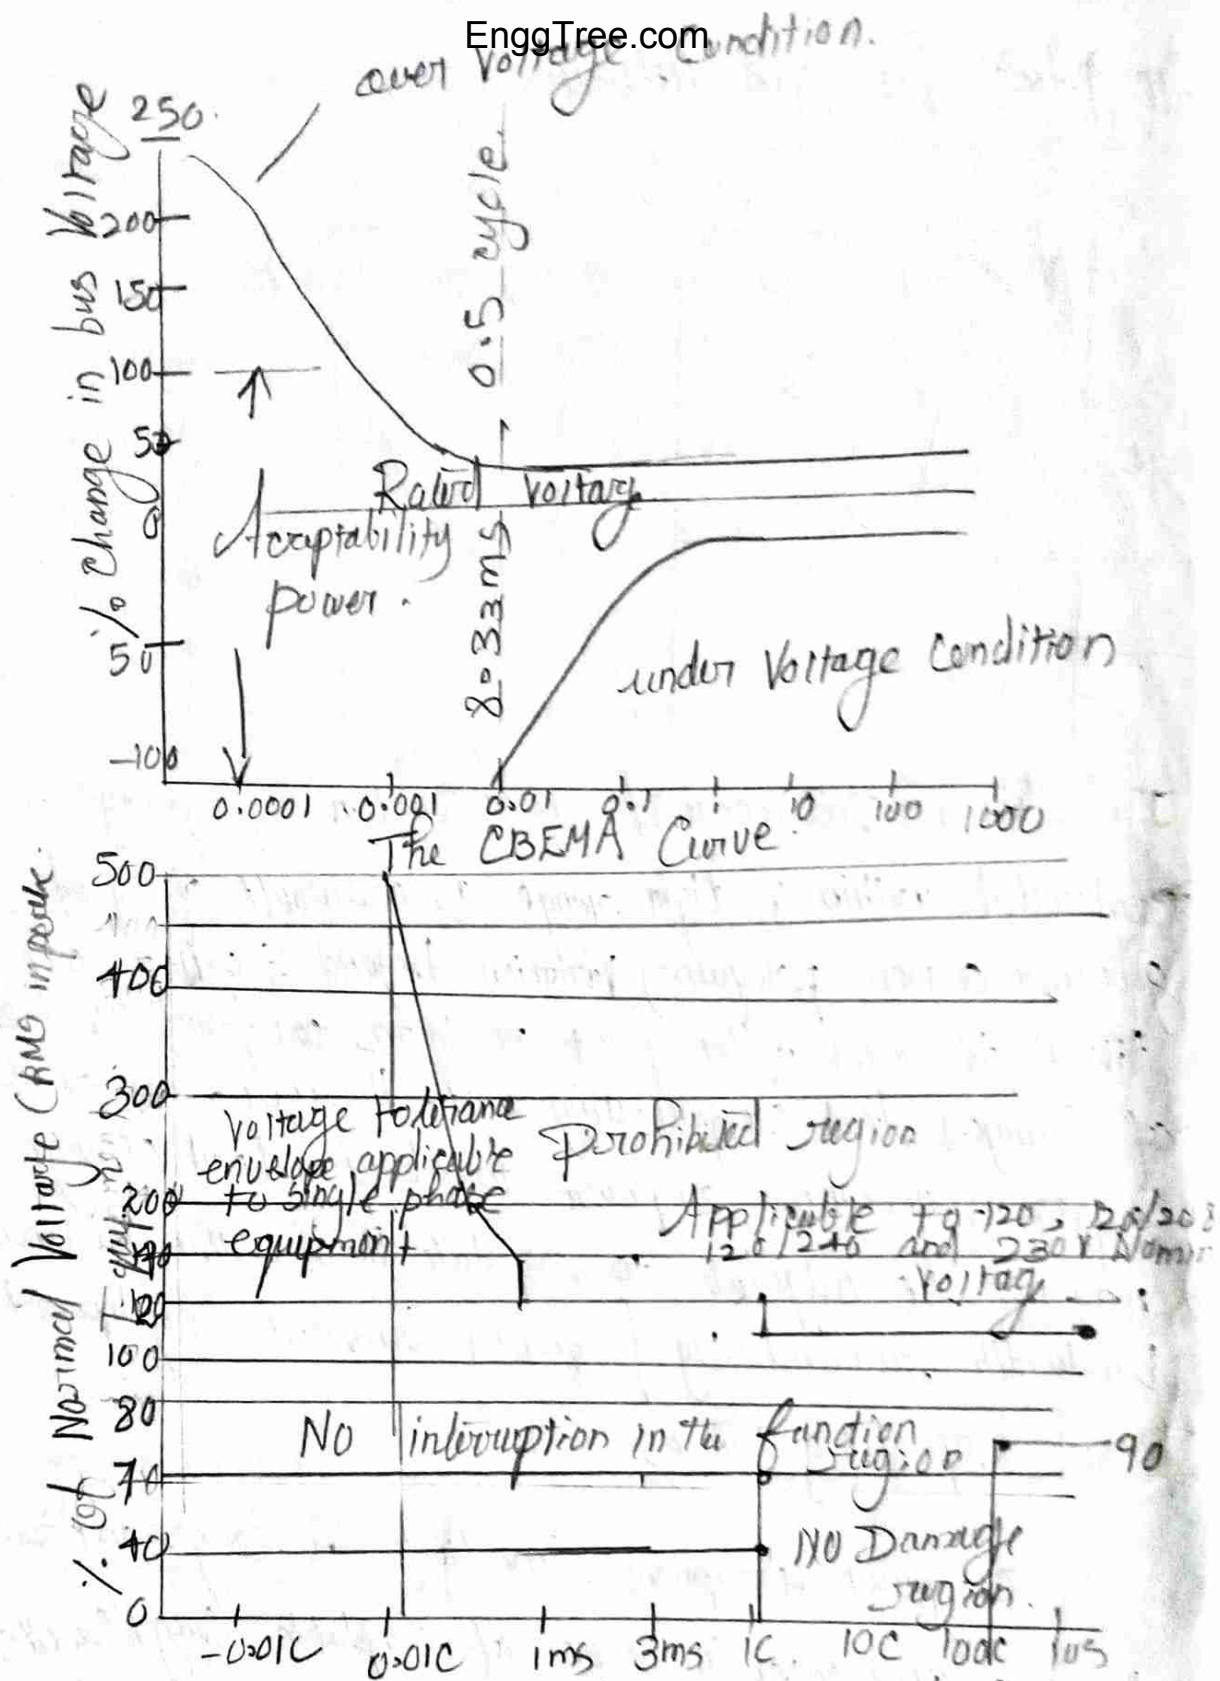 EnggTree.com
over Voltage Condition.
% Change in bus Voltage
250
200
150
100
50
0
50
-100
0.5 cycle
8.33ms
Rated Voltage
Acceptability
power.
under Voltage Condition
0.0001 0.001 0.01 0.1 1 10 100 1000
The CBEMA Curve
% of Normal Voltage (RMS
500
400
300
200
140
120
100
80
70
40
0
Voltage tolerance
envelope applicable
to single phase
equipment
Prohibited region
Applicable to 120,
120/240 and 230V
Voltage
No interruption in the function
region
90
NO Damage
region.
-0.01C 0.01C 1ms 3ms 1C 10C 100C